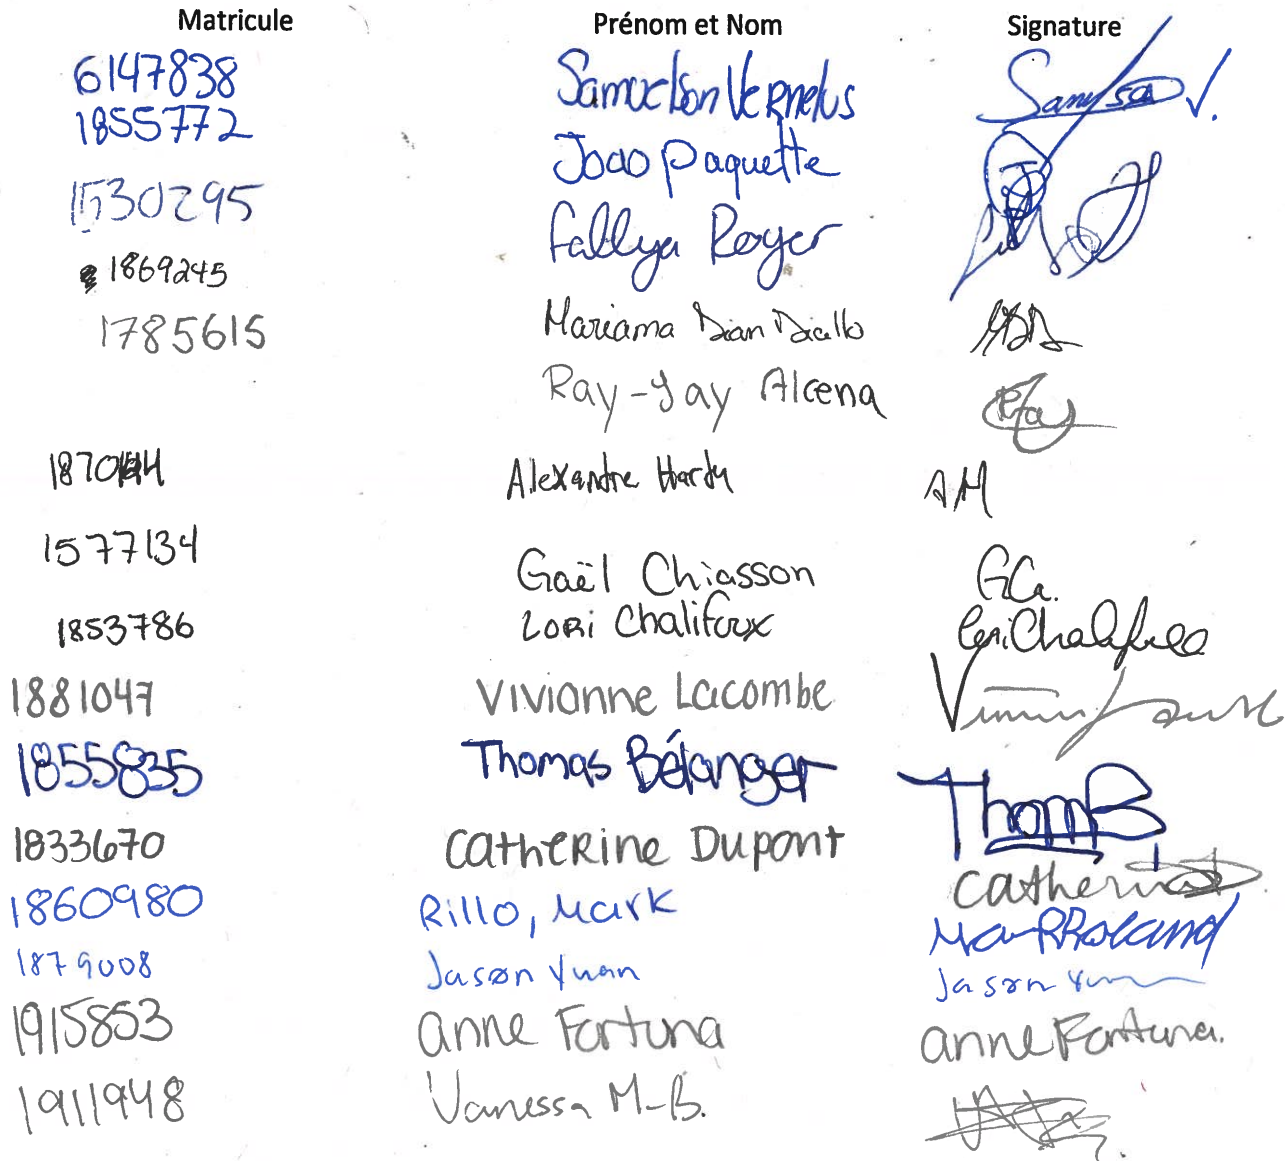 Matricule Prénom et Nom Signature
6147838 Samuelson Vernelus
1855772 Joao Paquette
1530295 Fallya Roger
1869245 Mariama Dian Diallo MDD
1785615 Ray-Jay Alcena
1870144 Alexandre Hardy AH
1577134 Gaël Chiasson G.C.
1853786 Lori Chalifoux Lori Chalifoux
1881047 Vivianne Lacombe
1855835 Thomas Bélanger Thom B
1833670 Catherine Dupont Catherine
1860980 Rillo, Mark
1879008 Jason Yuan Jason Yuan
1915853 Anne Fortuna Anne Fortuna.
1911948 Vanessa M-B.